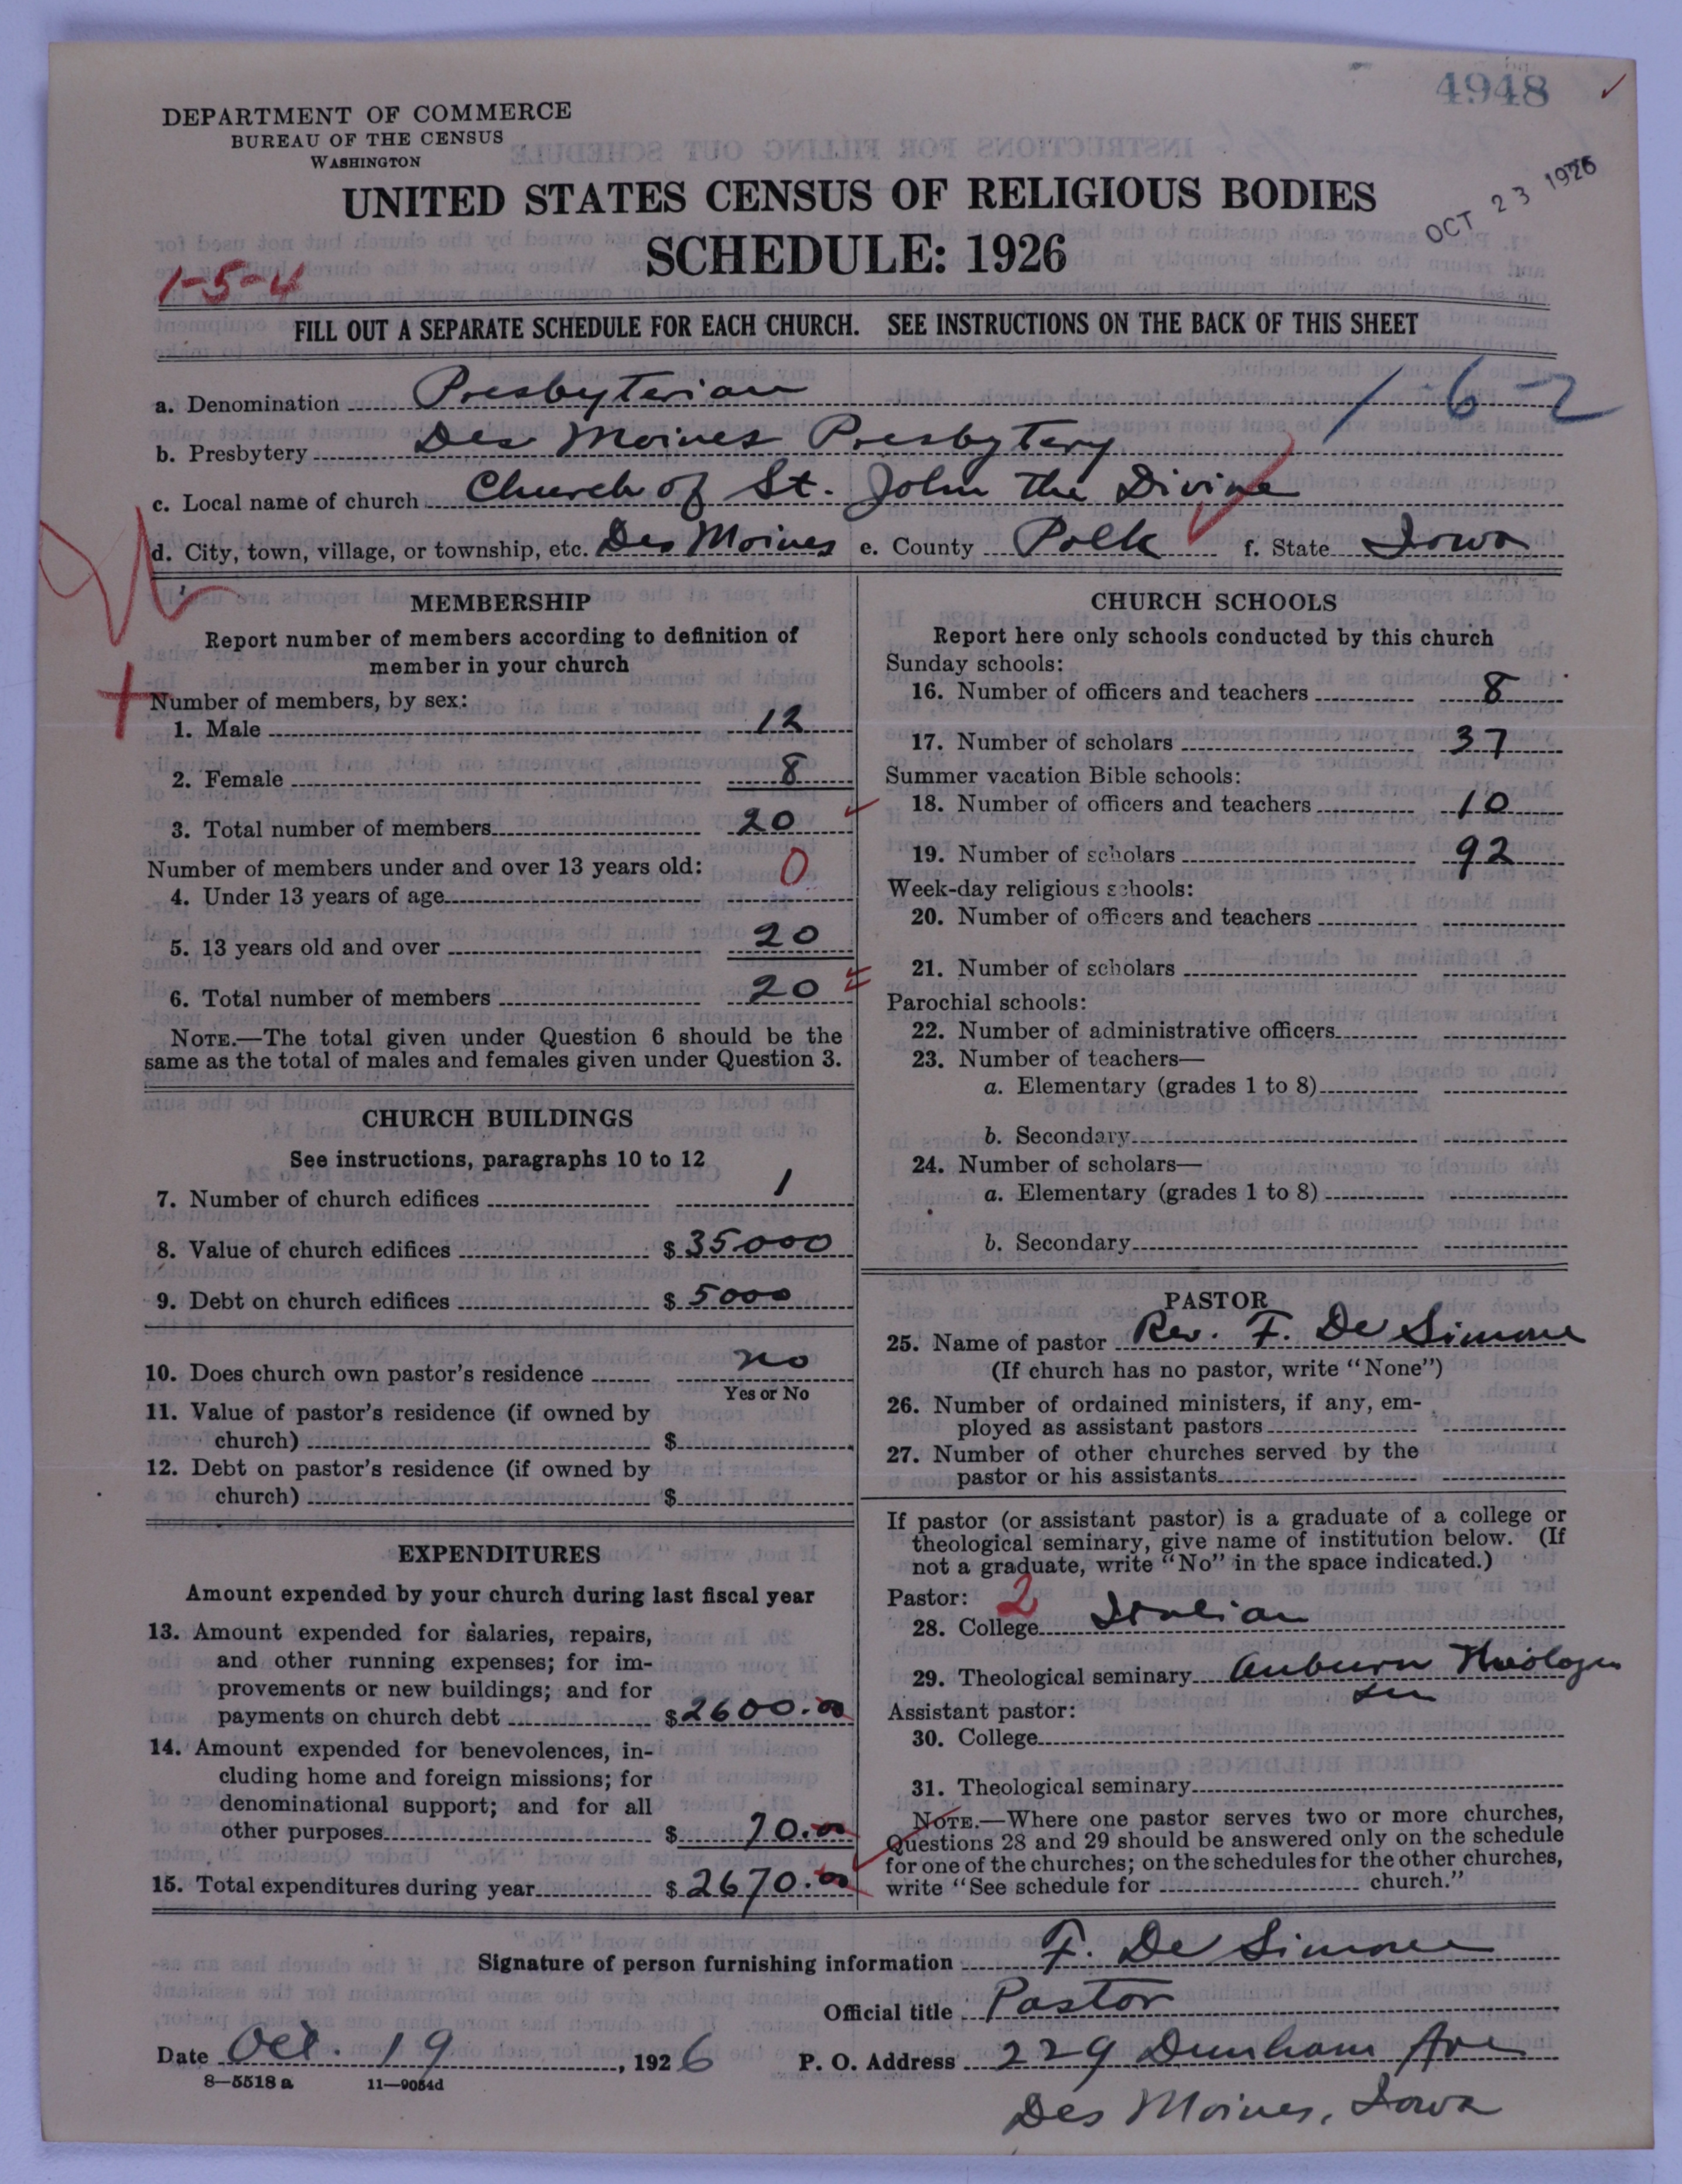 4948
DEPARTMENT OF COMMERCE
BUREAU OF THE CENSUS
WASHINGTON
UNITED STATES CENSUS OF RELIGIOUS BODIES
OCT 23 1926
SCHEDULE: 1926
1-5-4
FILL OUT A SEPARATE SCHEDULE FOR EACH CHURCH. SEE INSTRUCTIONS ON THE BACK OF THIS SHEET
a. Denomination Presbyterian 1-6-2
b. Presbytery Des Moines Presbytery
c. Local name of church Church of St. John the Divine
d. City, town, village, or township, etc. Des Moines e. County Polk f. State Iowa
MEMBERSHIP
Report number of members according to definition of
member in your church
Number of members, by sex:
1. Male 12
2. Female 8
3. Total number of members 20
Number of members under and over 13 years old:
4. Under 13 years of age 0
5. 13 years old and over 20
6. Total number of members 20
NOTE.—The total given under Question 6 should be the
same as the total of males and females given under Question 3.
CHURCH BUILDINGS
See instructions, paragraphs 10 to 12
7. Number of church edifices 1
8. Value of church edifices $ 35000
9. Debt on church edifices $ 5000
10. Does church own pastor's residence no
Yes or No
11. Value of pastor's residence (if owned by
church) $
12. Debt on pastor's residence (if owned by
church) $
EXPENDITURES
Amount expended by your church during last fiscal year
13. Amount expended for salaries, repairs,
and other running expenses; for im-
provements or new buildings; and for
payments on church debt $ 2600.00
14. Amount expended for benevolences, in-
cluding home and foreign missions; for
denominational support; and for all
other purposes $ 70.00
15. Total expenditures during year $ 2670.00
CHURCH SCHOOLS
Report here only schools conducted by this church
Sunday schools:
16. Number of officers and teachers 8
17. Number of scholars 37
Summer vacation Bible schools:
18. Number of officers and teachers 10
19. Number of scholars 92
Week-day religious schools:
20. Number of officers and teachers
21. Number of scholars
Parochial schools:
22. Number of administrative officers
23. Number of teachers—
a. Elementary (grades 1 to 8)
b. Secondary
24. Number of scholars—
a. Elementary (grades 1 to 8)
b. Secondary
PASTOR
25. Name of pastor Rev. F. De Simone
(If church has no pastor, write "None")
26. Number of ordained ministers, if any, em-
ployed as assistant pastors
27. Number of other churches served by the
pastor or his assistants
If pastor (or assistant pastor) is a graduate of a college or
theological seminary, give name of institution below. (If
not a graduate, write "No" in the space indicated.)
Pastor: 2
28. College Italian
29. Theological seminary Auburn
Assistant pastor:
30. College
31. Theological seminary
NOTE.—Where one pastor serves two or more churches,
Questions 28 and 29 should be answered only on the schedule
for one of the churches; on the schedules for the other churches,
write "See schedule for church."
Signature of person furnishing information F. De Simone
Official title Pastor
Date Oct. 19, 1926 P. O. Address 229 Dunham Ave
8—5518 a 11—9054d
Des Moines, Iowa